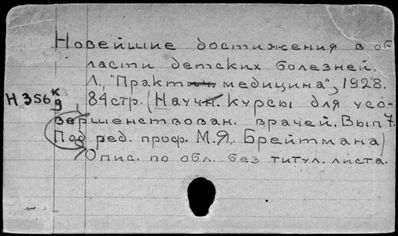 Новейшие достижения в об
ласти детских болезней.
Л., "Практ. медицина", 1928.
Н 356 к/9
84 стр. (Научн. курсы для усо-
вершенствован. врачей. Вып 7.
Под ред. проф. М.Я. Брейтмана)
Опис. по обл. без титул. листа.